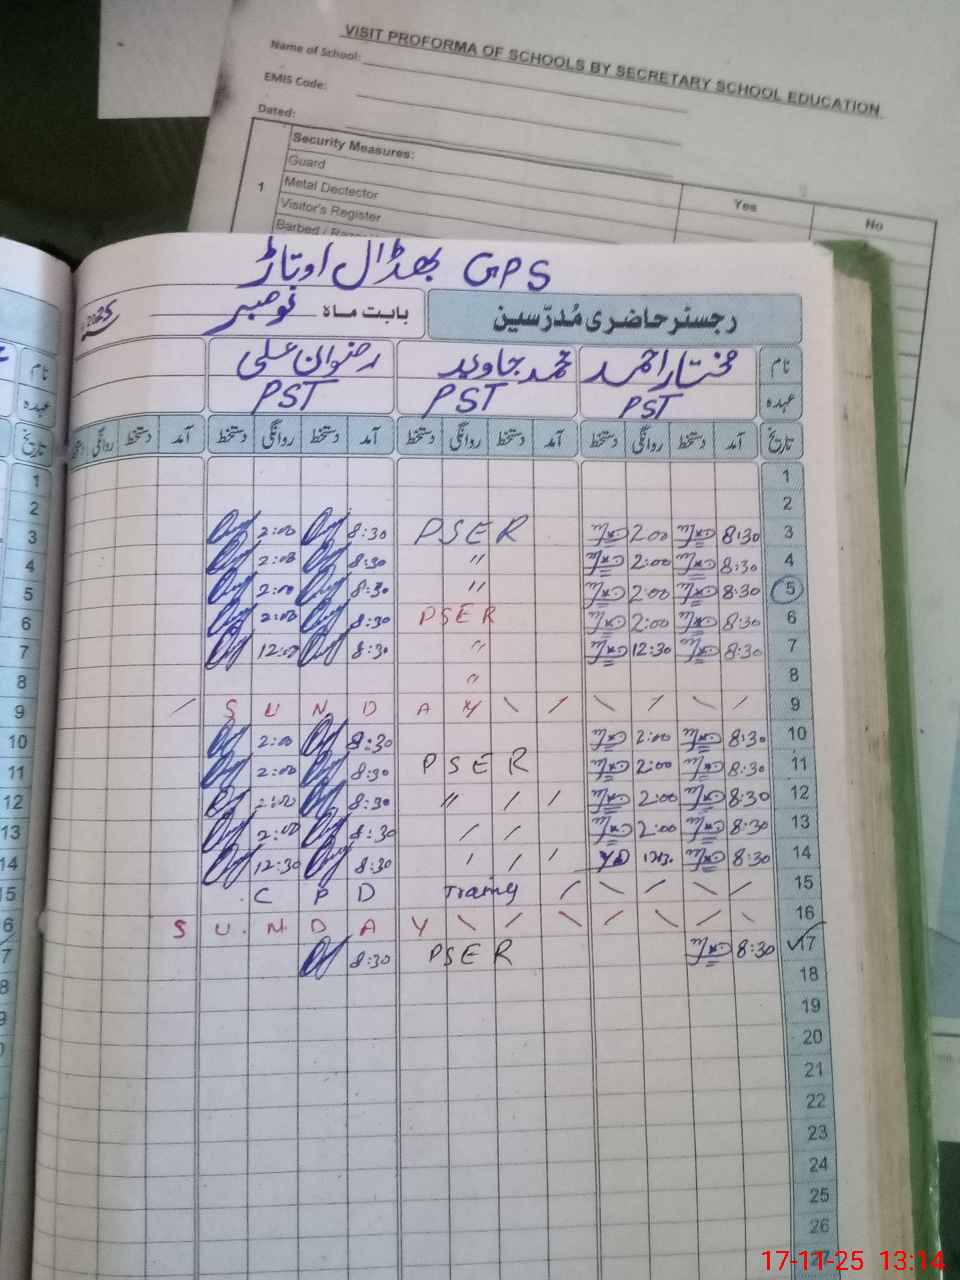 VISIT PROFORMA OF SCHOOLS BY SECRETARY SCHOOL EDUCATION
Name of School:
EMIS Code:
Dated:
Security Measures:
Yes No
1 Guard
Metal Dectector
Visitor's Register
Barbed /
GPS بھڈال اوتاڑ
رجسٹر حاضری مُدرّسین بابت ماہ نومبر 2025
نام مختار احمد محمد جاوید رضوان علی
عہدہ PST PST PST
تاریخ آمد دستخط روانگی دستخط آمد دستخط روانگی دستخط آمد دستخط روانگی دستخط آمد دستخط روانگی
1
2
3 8:30 2:00 PSER 8:30 2:00
4 8:30 2:00 " 8:30 2:00
5 8:30 2:00 " 8:30 2:00
6 8:30 2:00 PSER 8:30 2:00
7 8:30 12:30 " 8:30 12:00
8 "
9 S U N D A Y
10 8:30 2:00 8:30 2:00
11 8:30 2:00 PSER 8:30 2:00
12 8:30 2:00 " 8:30 2:00
13 8:30 2:00 8:30 2:00
14 8:30 8:30 12:30
15 C P D
16 S U N D A Y
17 8:30 PSER 8:30
18
19
20
21
22
23
24
25
26
27
17-11-25 13:14